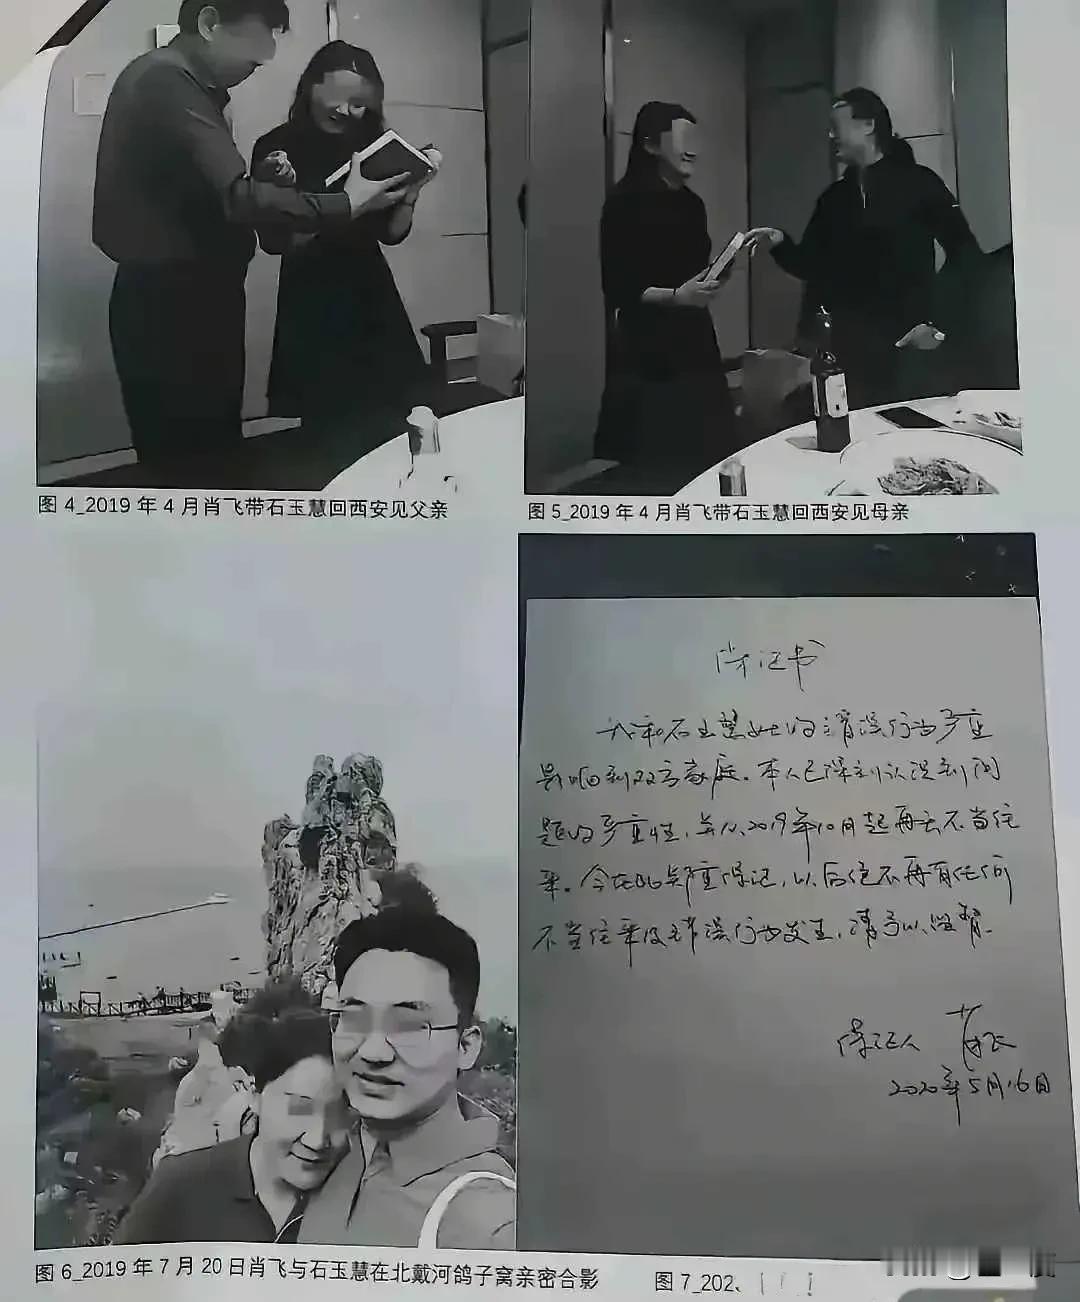 图 4_2019 年 4 月肖飞带石玉慧回西安见父亲
图 5_2019 年 4 月肖飞带石玉慧回西安见母亲
保证书
我和石玉慧女士的错误行为严重
影响到双方家庭。本人已深刻认识到问
题的严重性,并从2019年10月起再无不当往
来。今在此郑重保证,以后绝不再有任何
不当往来及错误行为发生,请予以监督。
保证人 肖飞
2020年5月16日
图 6_2019 年 7 月 20 日肖飞与石玉慧在北戴河鸽子窝亲密合影
图 7_202